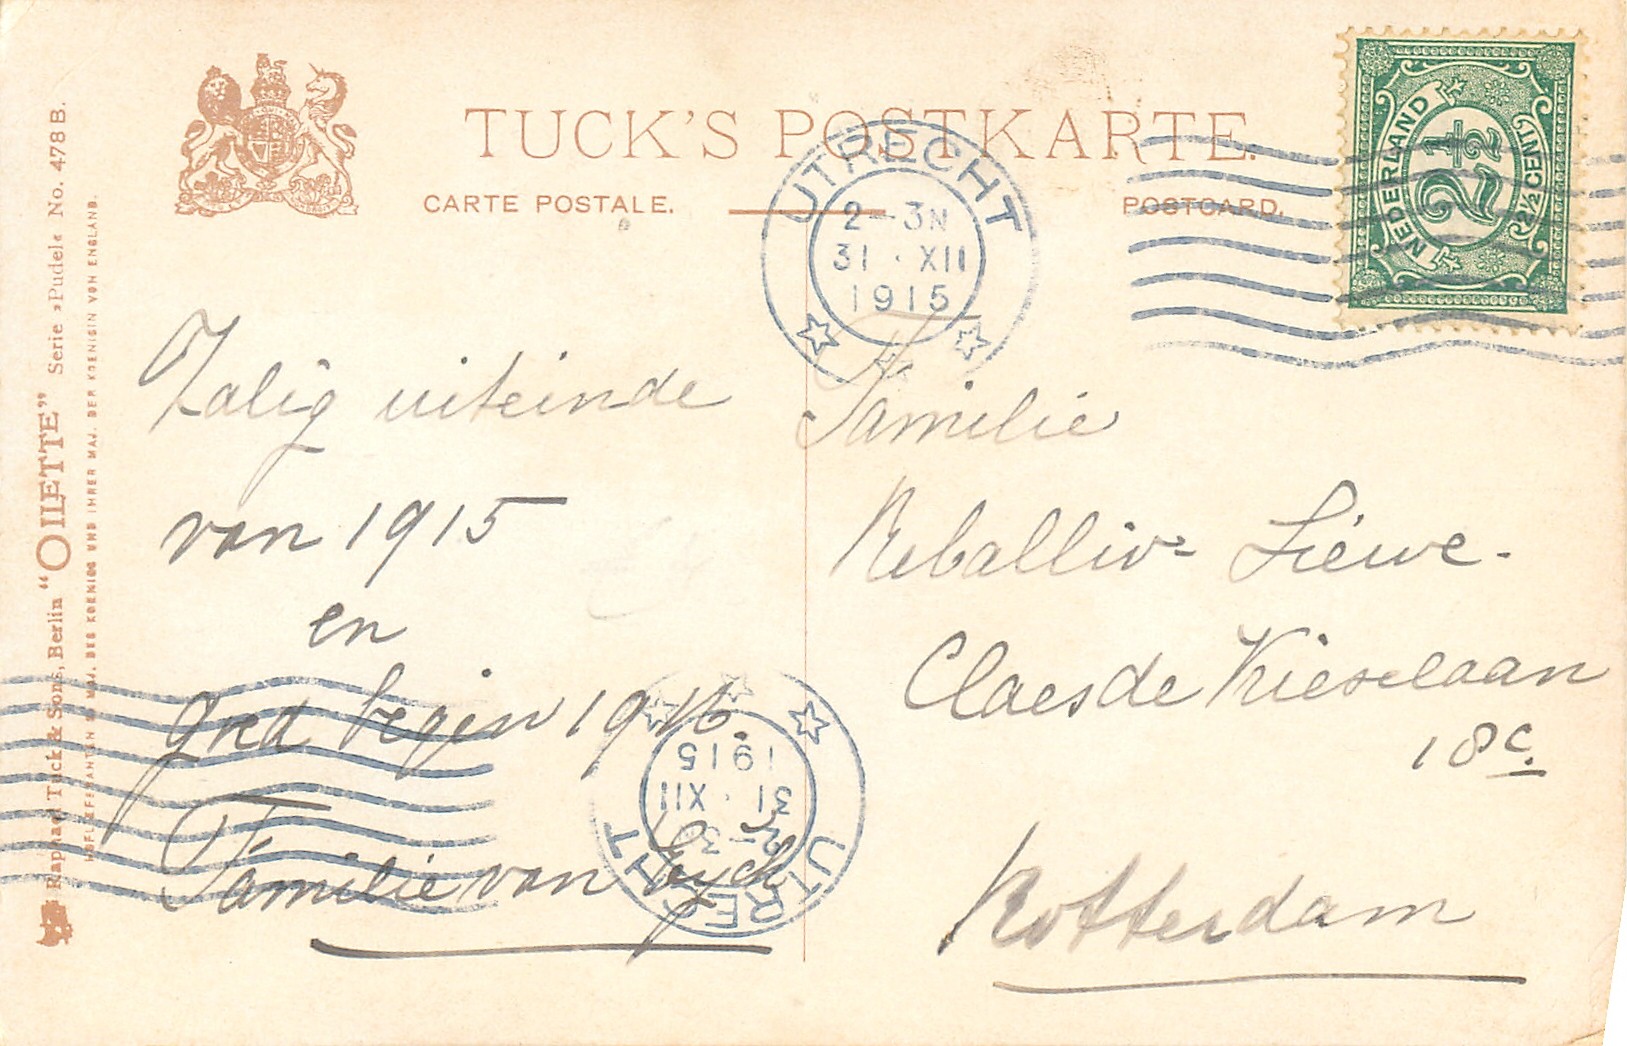 TUCK'S POSTKARTE.
CARTE POSTALE.
POSTCARD.
UTRECHT
2-3N
31·XII
1915
NEDERLAND
2½
2½ CENT
Zalig uiteinde
van 1915
en
goed begin 1916.
Familie van
Familie
Lieuwe-
Claes de Vrieselaan
18c.
Rotterdam
UTRECHT
2-3N
31·XII
1915
Raphael Tuck & Sons, Berlin "OILETTE" Serie »Pudel« No. 478 B.
HOFLIEFERANTEN SR MAJ. DES KOENIGS UND IHRER MAJ. DER KOENIGIN VON ENGLAND.